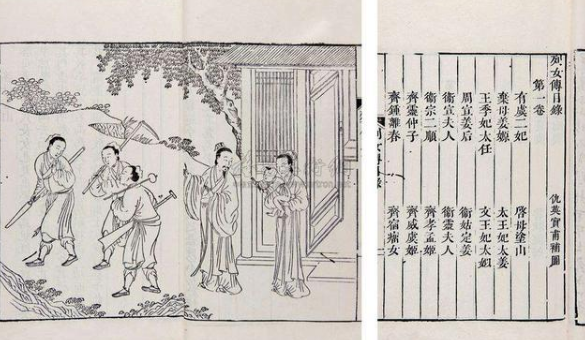 列女傳目錄
仇英實甫補圖
第一卷
有虞二妃 啓母塗山
棄母姜嫄 太王妃太姜
王季妃太任 文王妃太姒
周宣姜后 衞姑定姜
衞宣夫人 衞靈夫人
衞宗二順 齊孝孟姬
齊靈仲子 齊威虞姬
齊鍾離春 齊宿瘤女